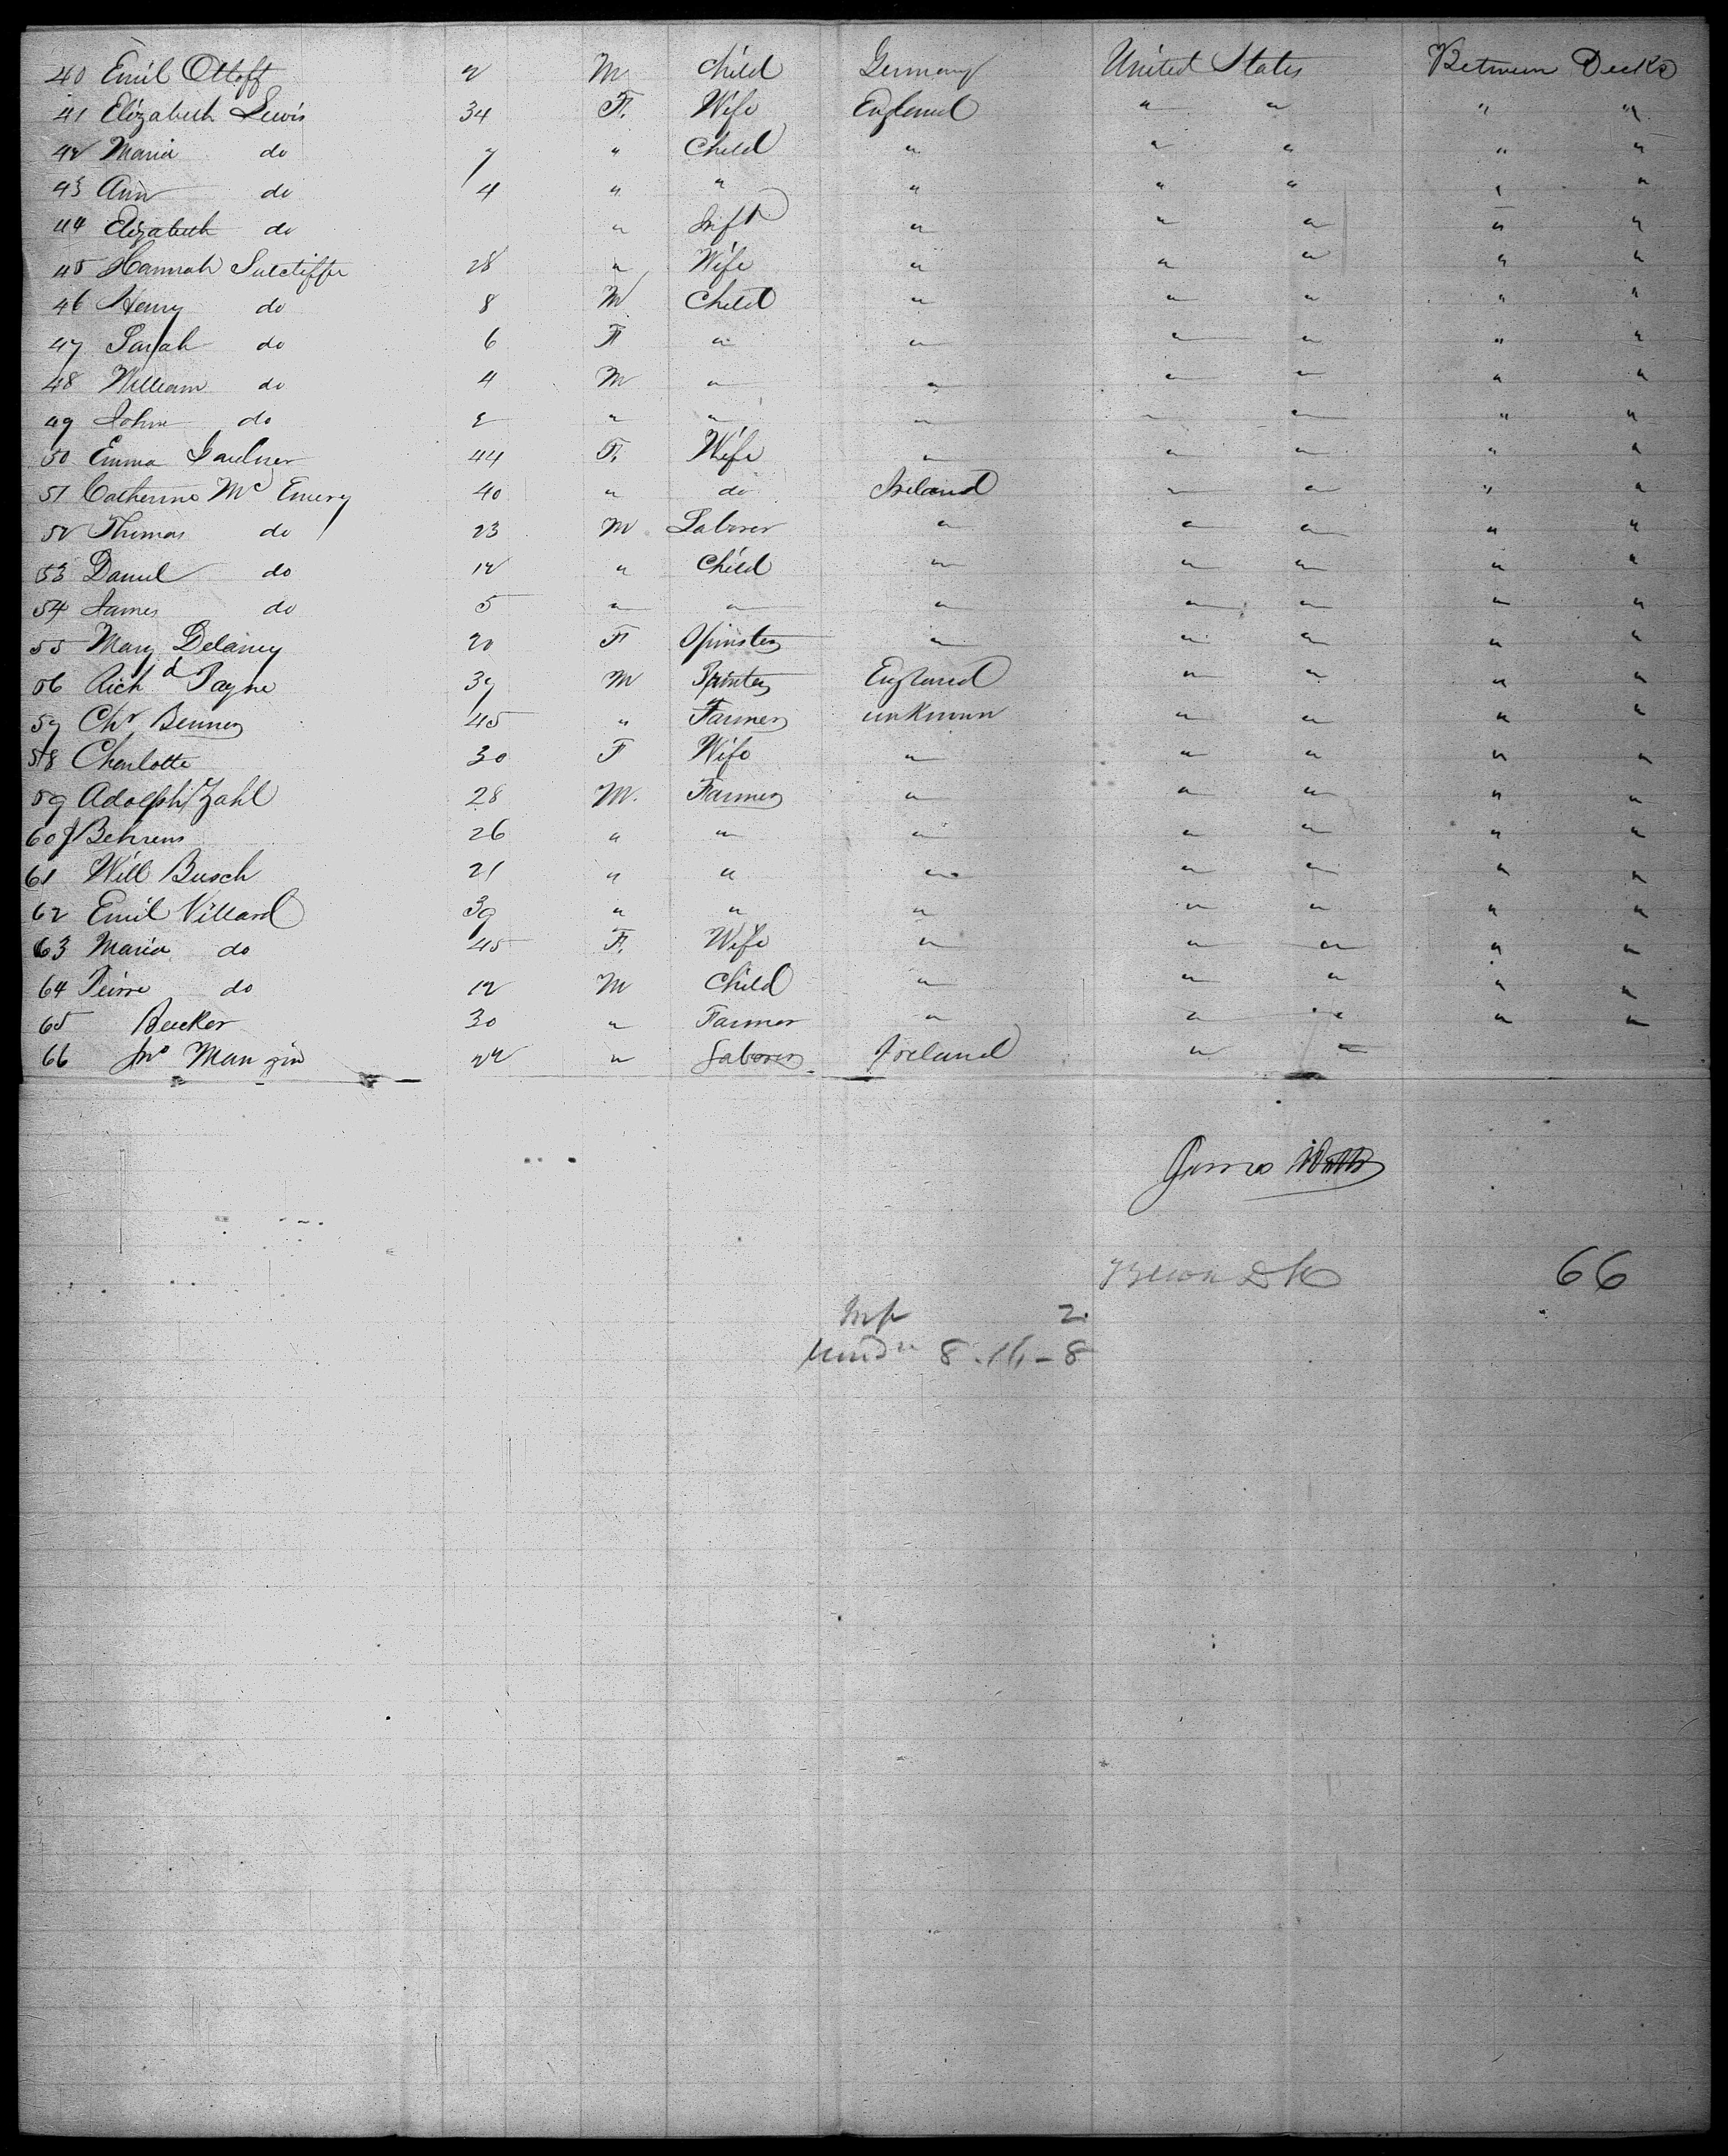 40 Emil Ottoff 2 M Child Germany United States Between Decks
41 Elizabeth Lewis 34 F. Wife England " " " "
42 Maria do 7 " Child " " " " "
43 Ann do 4 " " " " " " "
44 Elizabeth do " Inft " " " " "
45 Hannah Sutcliffe 28 " Wife " " " " "
46 Henry do 8 M Child " " " " "
47 Sarah do 6 F " " " " " "
48 William do 4 M " " " " " "
49 John do 2 " " " " " " "
50 Emma 44 F. Wife " " " " "
51 Catherine McEnery 40 " do Ireland " " " "
52 Thomas do 23 M Laborer " " " " "
53 Daniel do 12 " Child " " " " "
54 James do 5 " " " " " " "
55 Mary Delaney 20 F Spinster " " " " "
56 Richd Payne 37 M Printer England " " " "
57 Chr Benner 45 " Farmer unknown " " " "
58 Charlotte 30 F Wife " " " " "
59 Adolph Zahl 28 M. Farmer " " " " "
60 J Behrens 26 " " " " " " "
61 Will Busch 21 " " " " " " "
62 Emil Villard 39 " " " " " " "
63 Maria do 45 F. Wife " " " " "
64 Pierre do 12 M Child " " " " "
65 Becker 30 " Farmer " " " " "
66 Jno Mangin 22 " Laborer Ireland " "
James
66
Inf 2.
Under 8 . 16 - 8